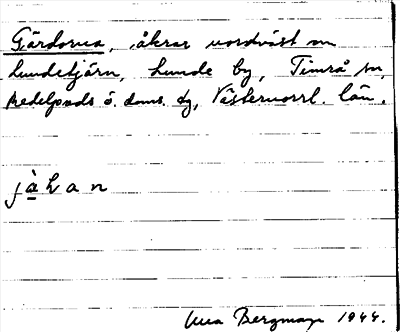 Gärdorna, åkrar nordväst om
Lundetjärn, Lunde by, Timrå sn,
Medelpads ö. doms. dg, Västernorrl. län.
jàhan
Una Bergman 1944.